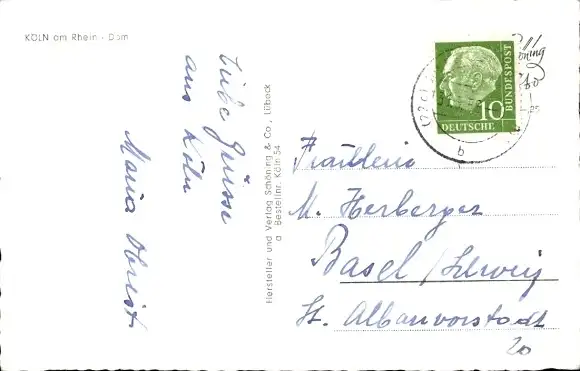 KÖLN am Rhein - Dom
Liebe Grüsse
aus Köln
Maria Obrist
Hersteller und Verlag Schöning & Co., Lübeck
a Bestellnr. Köln 54
10
DEUTSCHE
BUNDESPOST
b
Fräulein
M. Herberger
Basel / Schweiz
St. Albanvorstadt
20